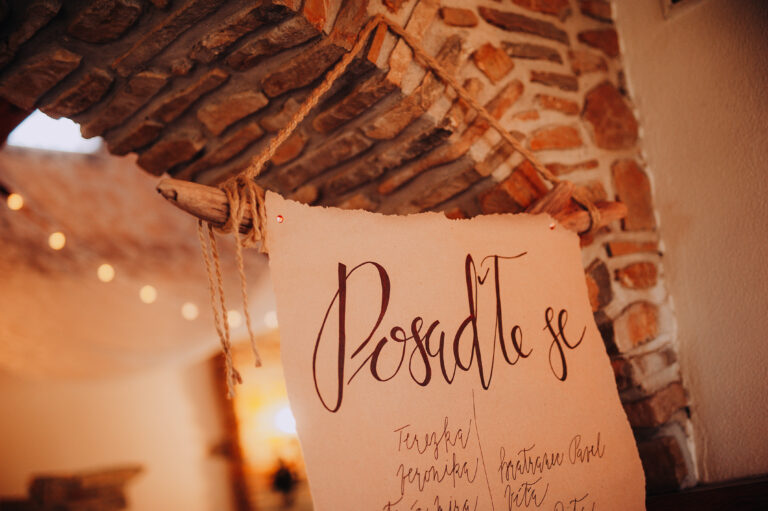 Posaďte se
Terezka
Veronika
bratranec Pavel
Víťa